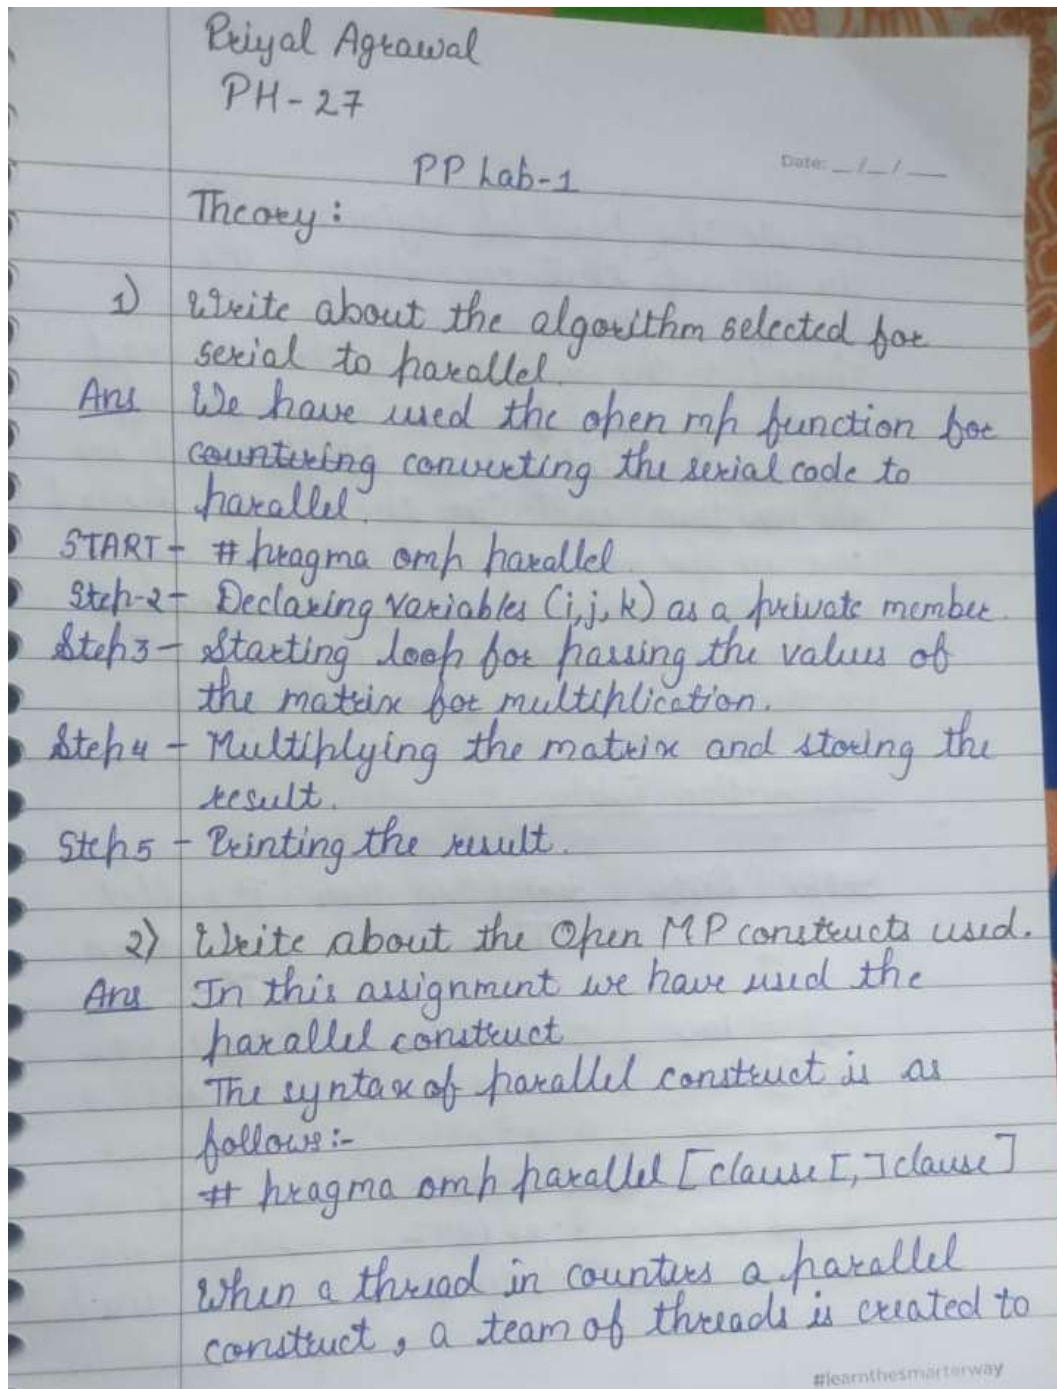 Priyal Agrawal
PH-27
PP Lab-1
Date: __/__/___
Theory:
1) Write about the algorithm selected for
serial to parallel.
Ans We have used the open mp function for
countering converting the serial code to
parallel.
START - # pragma omp parallel
Step-2 - Declaring variables (i,j,k) as a private member.
Step3 - Starting loop for passing the values of
the matrix for multiplication.
Step4 - Multiplying the matrix and storing the
result.
Step5 - Printing the result.
2) Write about the Open MP constructs used.
Ans In this assignment we have used the
parallel construct
The syntax of parallel construct is as
follows:-
# pragma omp parallel [clause[,]clause]
When a thread in counters a parallel
construct, a team of threads is created to
#learnthesmarterway